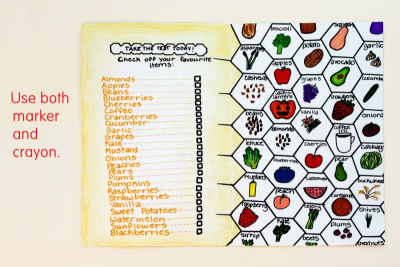 Use both
marker
and
crayon.
TAKE THE TEST TODAY!
Check off your favourite
items:
Almonds
Apples
Beans
Blueberries
Cherries
Coffee
Cranberries
Cucumber
Garlic
Grapes
Kale
Mustard
Onions
Peaches
Pears
Plums
Pumpkins
Raspberries
Strawberries
Vanilla
Sweet Potatoes
Watermelon
Sunflowers
Blackberries
broccoli
asparagus
potato
garlic
apples
avocado
cashews
grapes
cucumber
beans
vanilla
onions
almonds
coffee
lettuce
cherries
cabbage
blueberries
pear
mustard
peach
raspberry
chives
kale
celery
plums
turnip
beets
chestnuts